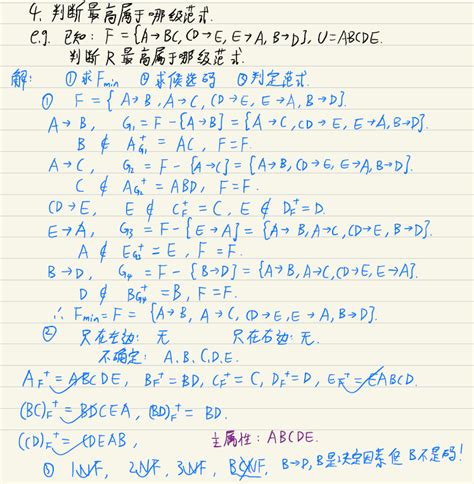 4. 判断最高属于哪级范式.
e.g. 已知: F = {A→BC, CD→E, E→A, B→D}, U=ABCDE.
判断 R 最高属于哪级范式.
解: ①求Fmin ②求候选码 ③判定范式.
① F = { A→B, A→C, CD→E, E→A, B→D}.
A→B, G₁ = F - {A→B} = {A→C, CD→E, E→A, B→D}.
B ∉ A_G₁⁺ = AC, F=F.
A→C, G₂ = F - {A→C} = {A→B, CD→E, E→A, B→D}.
C ∉ A_G₂⁺ = ABD, F=F.
CD→E, E ∉ C_F⁺ = C, E ∉ D_F⁺ = D.
E→A, G₃ = F - {E→A} = {A→B, A→C, CD→E, B→D}.
A ∉ E_G₃⁺ = E, F=F.
B→D, G₄ = F - {B→D} = {A→B, A→C, CD→E, E→A}.
D ∉ B_G₄⁺ = B, F=F.
∴ Fmin = F = {A→B, A→C, CD→E, E→A, B→D}
② 只在左边: 无 只在右边: 无.
不确定: A.B.C.D.E.
A_F⁺ = ABCDE, B_F⁺ = BD, C_F⁺ = C, D_F⁺ = D, E_F⁺ = EABCD.
(BC)_F⁺ = BDCEA, (BD)_F⁺ = BD.
(CD)_F⁺ = CDEAB, 主属性: ABCDE.
③ 1NF, 2NF, 3NF, BCNF, B→D, B是决定因素但B不是码!